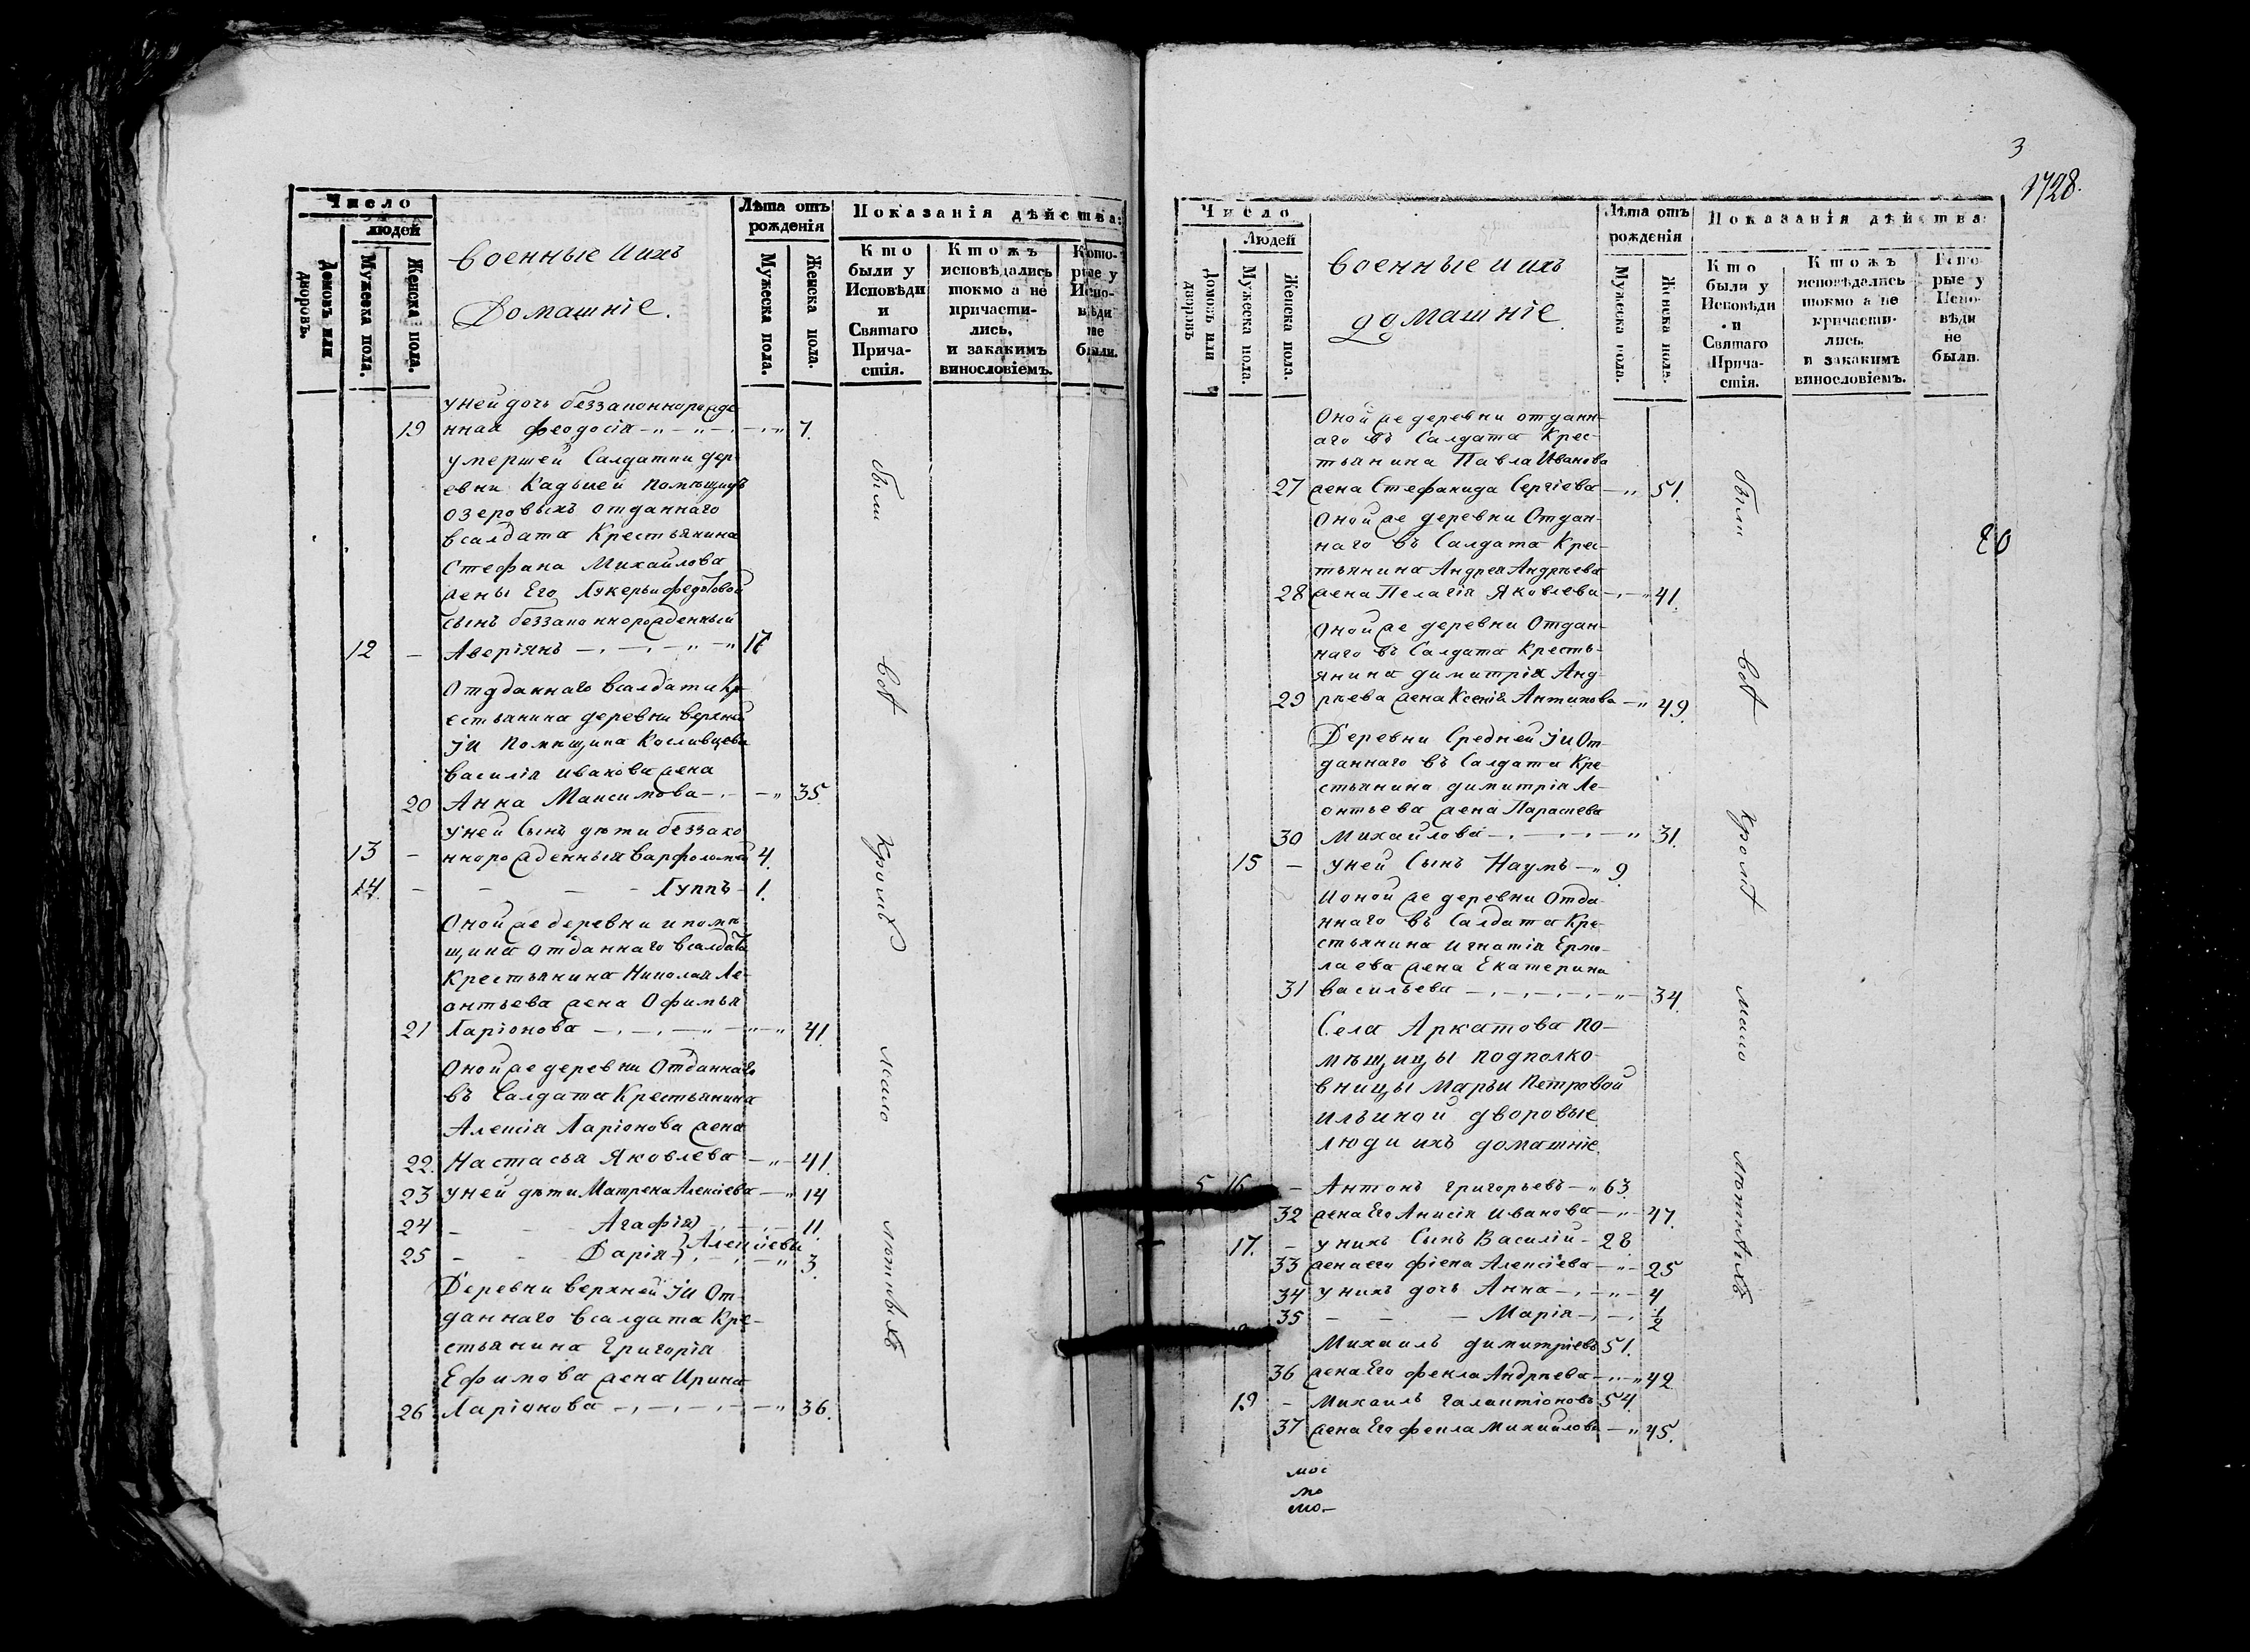 Число
людей
Домовъ или дворовъ.
Мужеска пола.
Женска пола.
военные ихъ
Домашніе.
Лѣта отъ
рожденія
Мужеска пола.
Женска пола.
Показанія дѣйства:
Кто
были у
Исповѣди
и
Святаго
Прича-
стія.
Ктожъ
исповѣдались
токмо а не
причасти-
лись,
и закакимъ
винословіемъ.
Кото-
рые у
Испо-
вѣди
не
были.
уней дочь беззаконнорожде
19 нная феодосія 7.
умершей Салдатки дер-
евни Кадьшей помѣщицъ
озеровыхъ отданнаго
всалдата Крестьянина
Стефана Михайлова
жены Его Лукерьи федотовой
сынъ беззаконнорожденный
12 – Аверіянъ 17
Отданнаго всалдати Кр-
естьянина деревни верхней
ІИ помѣщика
василія иванова жена
20 Анна Максимова 35.
уней Сынъ дѣти беззако
13 – ннорожденныя варфоломей 4.
14. – Луппъ 1.
Оной же деревни и помѣ
щика отданнаго всалдаты
Крестьянина Николая Ле-
онтьева жена Офимья
21 Ларіонова 41.
Оной же деревни Отданнаго
въ Салдата Крестьянина
Алексія Ларіонова жена
22. Настасья Яковлева 41.
23 уней дѣти Матрена Алексіева 14
24 Агафія 11.
25 Дарія Алексіевы 3.
Деревни верхней ІИ От-
даннаго всалдата Кре-
стьянина Григорія
Ефимова жена Ирина
26 Ларіонова 36.
были
всѣ
Кромѣ
мало
лѣтнѣхъ
3
1728.
Число
Людей
Домовъ или дворовъ
Мужеска пола.
Женска пола.
военные и ихъ
домашніе.
Лѣта отъ
рожденія
Мужеска пола.
Женска пола.
Показанія дѣйства:
Кто
были у
Исповѣди
и
Святаго
Прича-
стія.
Ктожъ
исповѣдались
токмо а не
причасти-
лись,
и закакимъ
винословіемъ.
Кото
рые у
Испо-
вѣди
не
были.
Оной же деревни отданн-
аго въ Салдата Крес-
тьянина Павла Иванова
27 жена Стефанида Сергіева 51.
Оной же деревни Отдан-
наго въ Салдата Крес-
тьянина Андрея Андрѣева
28 жена Пелагія Яковлева 41.
Оной же деревни Отдан-
наго въ Салдата Кресть-
янина димитрія Анд-
29 рѣева жена Ксенія Антипова 49.
Деревни Средней ІИ От-
даннаго въ Салдати Кре-
стьянина димитрія Ле-
онтьева жена Параскева
30 Михайлова 31.
15 – уней Сынъ Наумъ 9.
Ионой же деревни Отда-
ннаго въ Салдата Кре-
стьянина игнатія Ермо-
лаева жена Екатерина
31 васильева 34.
Села Аркатова по-
мѣщицы подполко-
вницы Марьи Петровой
ильиной дворовые
люди ихъ домашніе.
5 16 – Антонъ григорьевъ 63.
32 жена Его Анисія иванова 47.
17. – у нихъ Сынъ Василій 28
33 жена его фіена Алексіева 25
34 у нихъ дочь Анна 4
35 Марія ½
Михаилъ димитріевъ 51.
36 жена Его фекла Андрѣева 42
19 – Михаилъ галактіоновъ 54.
37 жена Его фекла Михайлова 45.
были
всѣ
Кромѣ
мало
лѣтнѣхъ
20